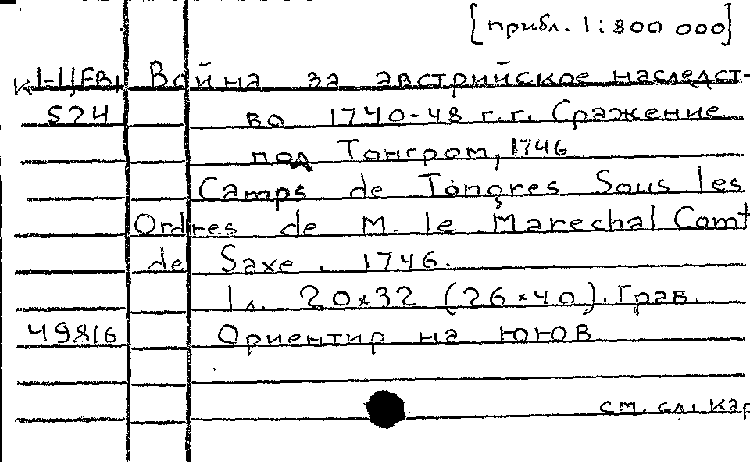 [прибл. 1:800 000]
Война за австрийское наследст-
574 во 1740-48 г.г. Сражение
под Тонгром, 1746
Camps de Tongres Sous les
Ordres de M. le Marechal Comt
de Saxe. 1746.
1 л. 20×32 (26×40). Грав.
49816 Ориентир на ЮЮВ
см. сл. кар